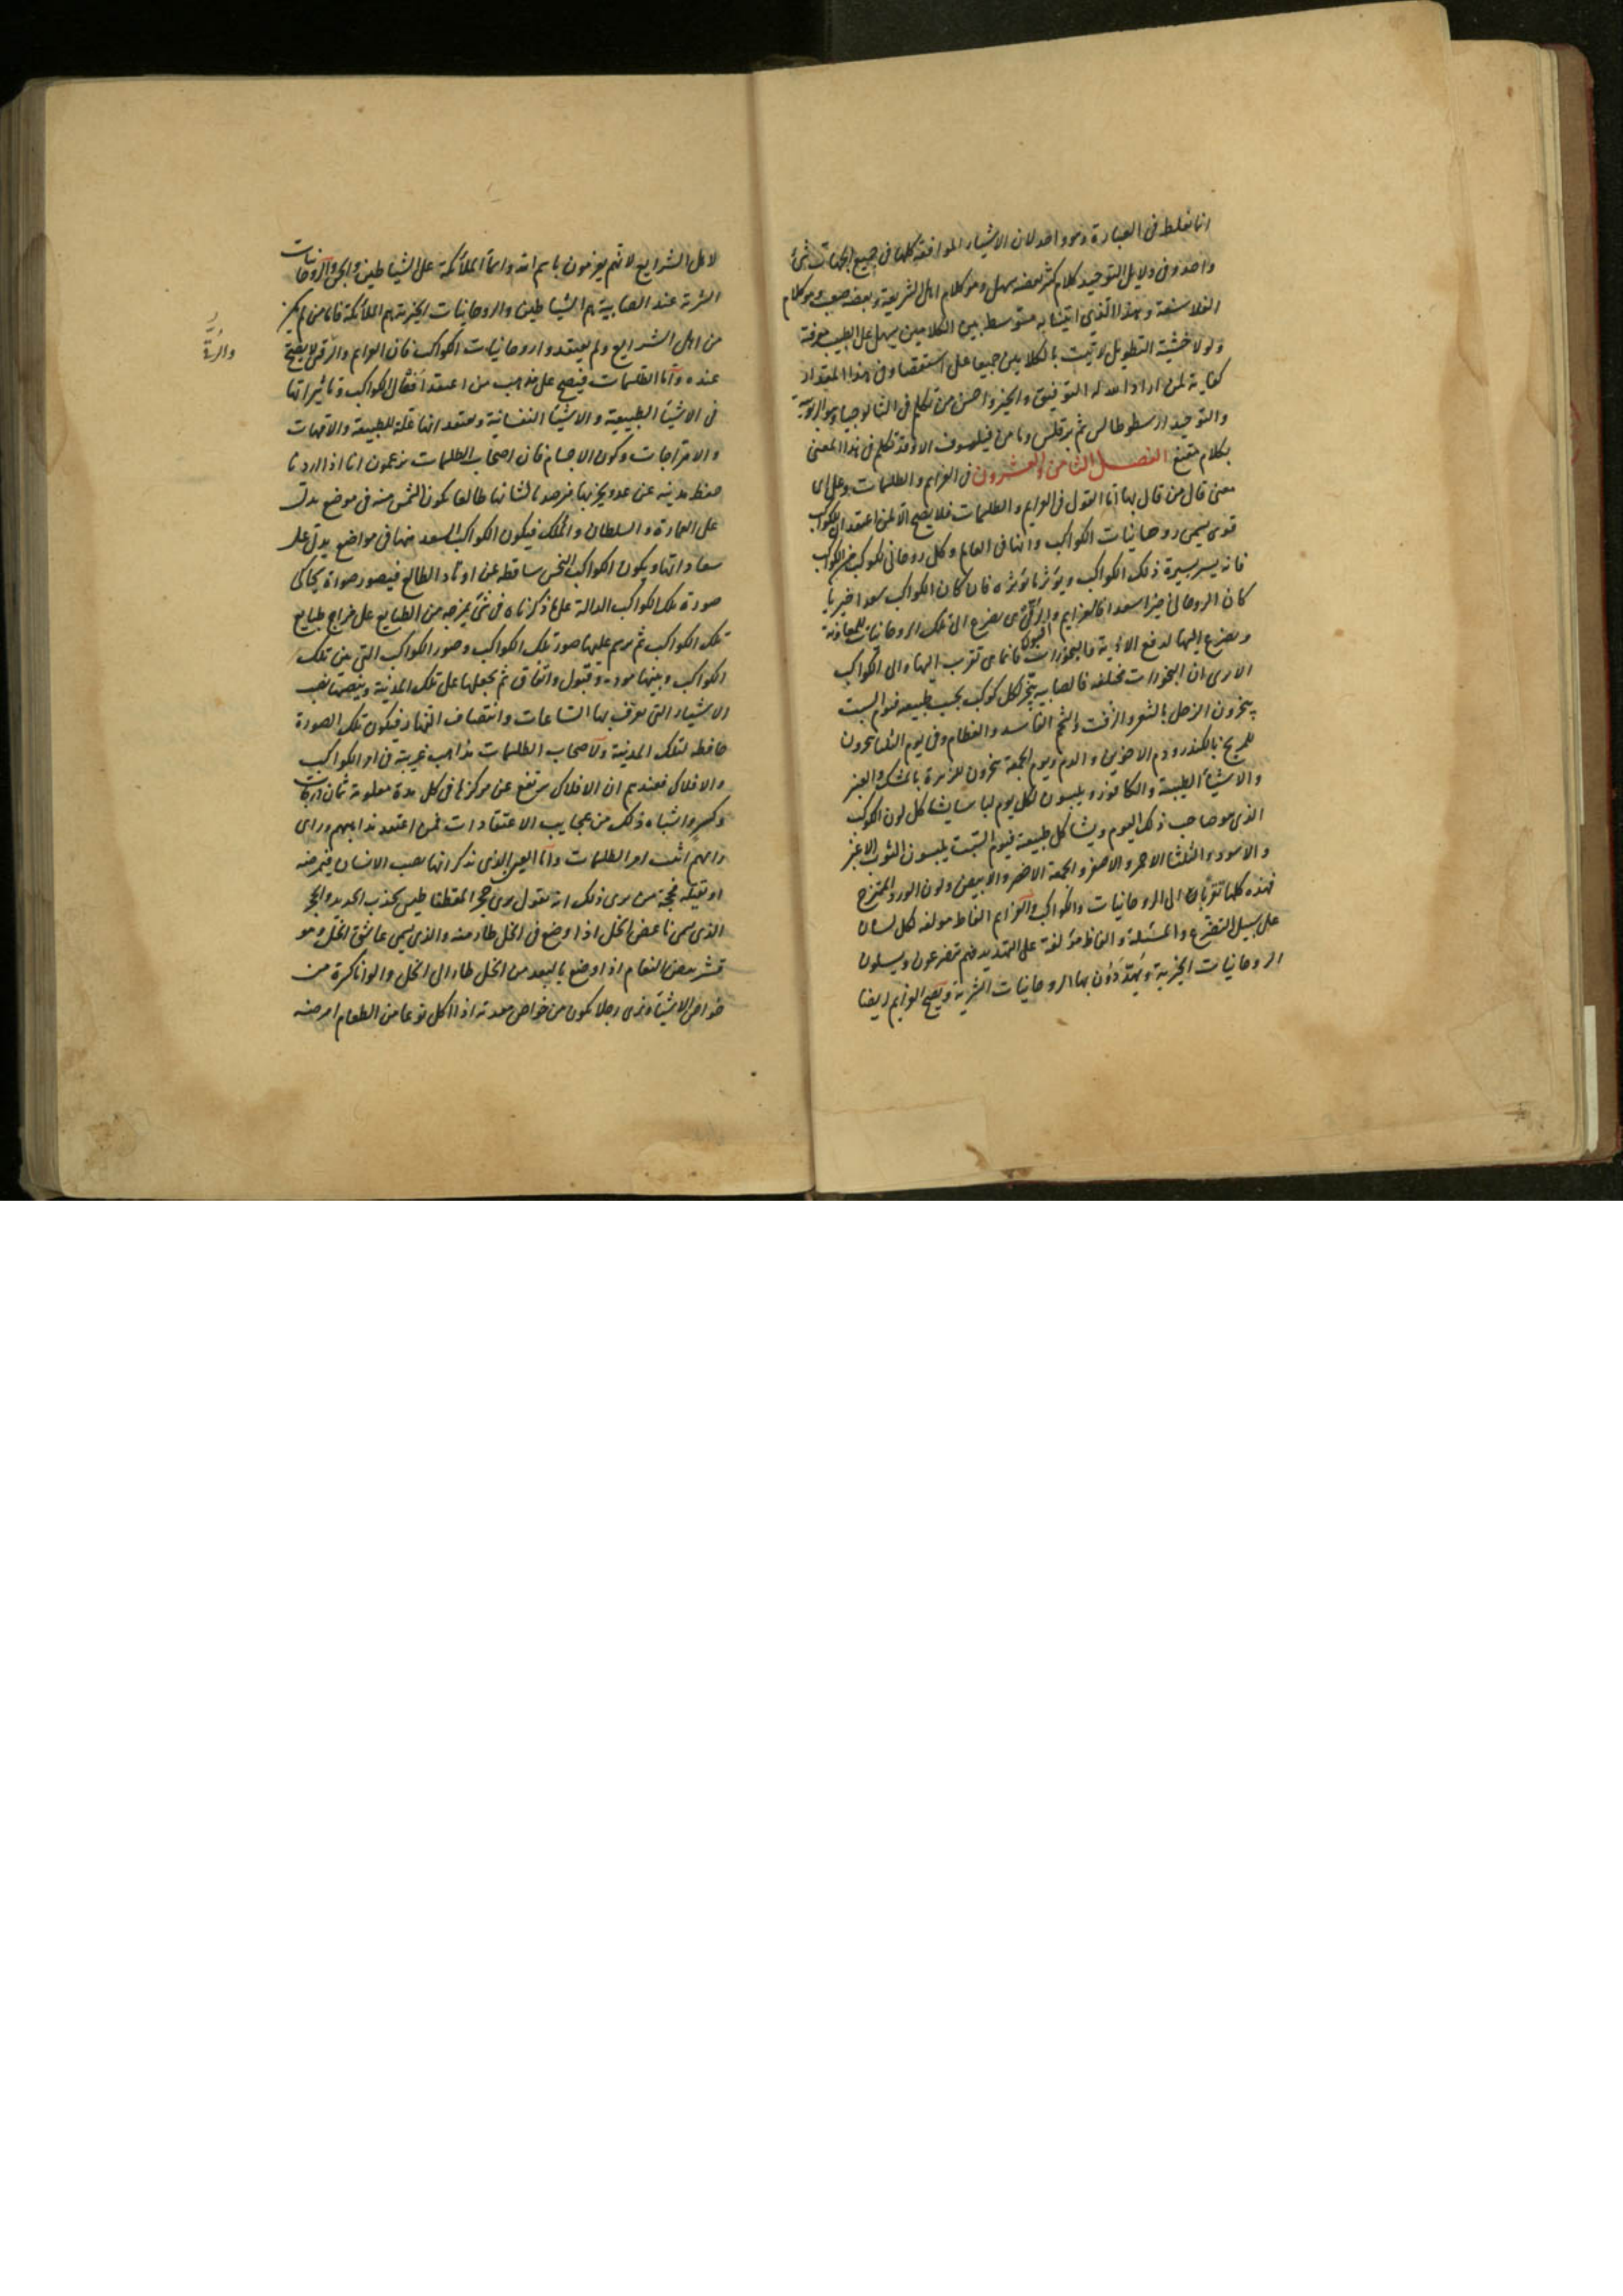 انا نغلط في العبارة وهو واحد لان الاشياء الموافقة كلها في جميع الجهات شيء
واحد وفي دلايل التوحيد كلام كثير بعضه سهل وهو كلام اهل الشريعة وبعضه صعب وهو كلام
الفلاسفة وهذا الذي اتينا به متوسط بين الكلامين يسهل على الطبيب معرفته
ولولا خشية التطويل لاتيت بالكلامين جميعا على استقصاء وفي هذا المقدار
كفاية لمن اراد الله له التوفيق والخير واحسن من تكلم في الثالوجيا وهو الربوبية
والتوحيد ارسطوطالس ثم برقلس وما من فيلسوف الا وقد تكلم في هذا المعنى
بكلام مقنع الفصل الثامن والعشرون في العزايم والطلسمات وعلى اي
معنى قال من قال بها اما القول في العزايم والطلسمات فلا يصح الا لمن اعتقد ان للكواكب
قوى يسمى روحانيات الكواكب وانها في العالم وكل روحاني لكوكب من الكواكب
فانه يسير بسيرة ذلك الكواكب ويؤثر تاثيره فان كان الكواكب سعدا خيريا
كان الروحاني خيرا سعدا فالعزايم والرقى هي تضرع الى تلك الروحانيات للمعاونة
وتضرع اليها لدفع الاذية فالبخورات فانما هي تقرب اليها والى الكواكب
الا ترى ان البخورات مختلفة فالصابيه يبخر لكل كوكب بحسب طبيعته فيوم السبت
يبخرون الزحل بالشعر والزفت والشحم الفاسد والعظام وفي يوم الثلثا يبخرون
للمريخ بالكندر ودم الاخوين والدم ويوم الجمعة يبخرون للزهرة بالمسك والعنبر
والاشياء الطيبة والكافور ويلبسون لكل يوم لباسا يشاكل لون الكوكب
الذي هو صاحب ذلك اليوم ويشاكل طبيعته فيوم السبت يلبسون الثوب الاغبر
والاسود والثلثا الاحمر والاصفر والجمعة الاخضر والابيض ولون الورد الممتزج
فهذه كلها تقربات الى الروحانيات والكواكب والعزايم الفاظ مولفه لكل لسان
على سبيل التضرع والمسئلة والفاظ مؤلفة على التهديد فهم يتضرعون ويسئلون
الروحانيات الخيرية ويتهددون بها الروحانيات الشرية ويصح العزايم ايضا
لاهل الشرايع لانهم يعزمون باسم الله واسماء الملائكة على الشياطين والجن والروحانيات
الشرية عند الصابية هم الشياطين والروحانيات الخيرية هم الملائكة فاما من لم يكن
من اهل الشرايع ولم يعتقدوا روحانيات الكواكب فان العزايم والرقى لا يصح
عنده واما الطلسمات فيصح على مذهب من اعتقد افعال الكواكب وتاثيراتها
في الاشياء الطبيعية والاشياء النفسانية ويعتقد انها علة للطبيعة والامهات
والامتزاجات وكون الاجسام فان اصحاب الطلسمات يزعمون انا اذا اردنا
حفظ مدينه عن عدو يخربها فرصدنا لشانها طالعا يكون الشمس منه في موضع يدل
على العمارة والسلطان والملك فيكون الكواكب السعد منها في مواضع يدل على
سعاداتها ويكون الكواكب النحس ساقطه عن اوتاد الطالع فيصور صورة يحاكي
صورة تلك الكواكب الدالة على ما ذكرناه في شيء يمزجه من الطبايع على مزاج طبايع
تلك الكواكب ثم يرسم عليها صور تلك الكواكب وصور الكواكب التي بين تلك
الكواكب وبينها مودة وقبول واتفاق ثم يجعلها على تلك المدينة وينصبها نصب
الاشياء التي تعرف بها الساعات وانتصاف النهار فيكون تلك الصورة
حافظه لتلك المدينة ولاصحاب الطلسمات مذاهب غريبة في امر الكواكب
والافلاك فعندهم ان الافلاك يرتفع عن مركزها في كل مدة معلومة ثمان درجات
وكسر واشباه ذلك من عجايب الاعتقادات فمن اعتقد مذاهبهم وراى
رايهم اثبت امر الطلسمات واما العين الذي نذكر انها تصيب الانسان فيمرضه
او تقتله فحجة من يرى ذلك انه يقول نرى حجر المقناطيس يجذب الحديد والحجر
الذي يسمى باغض الخل اذا وضع في الخل طار منه والذي يسمى عاشق الخل وهو
قشر بيض النعام اذا وضع بالبعد من الخل طار الى الخل والوانا كثيرة من
خواص الاشياء ونرى رجلا يكون من خواص معدته اذا اكل نوعا من الطعام امرضه